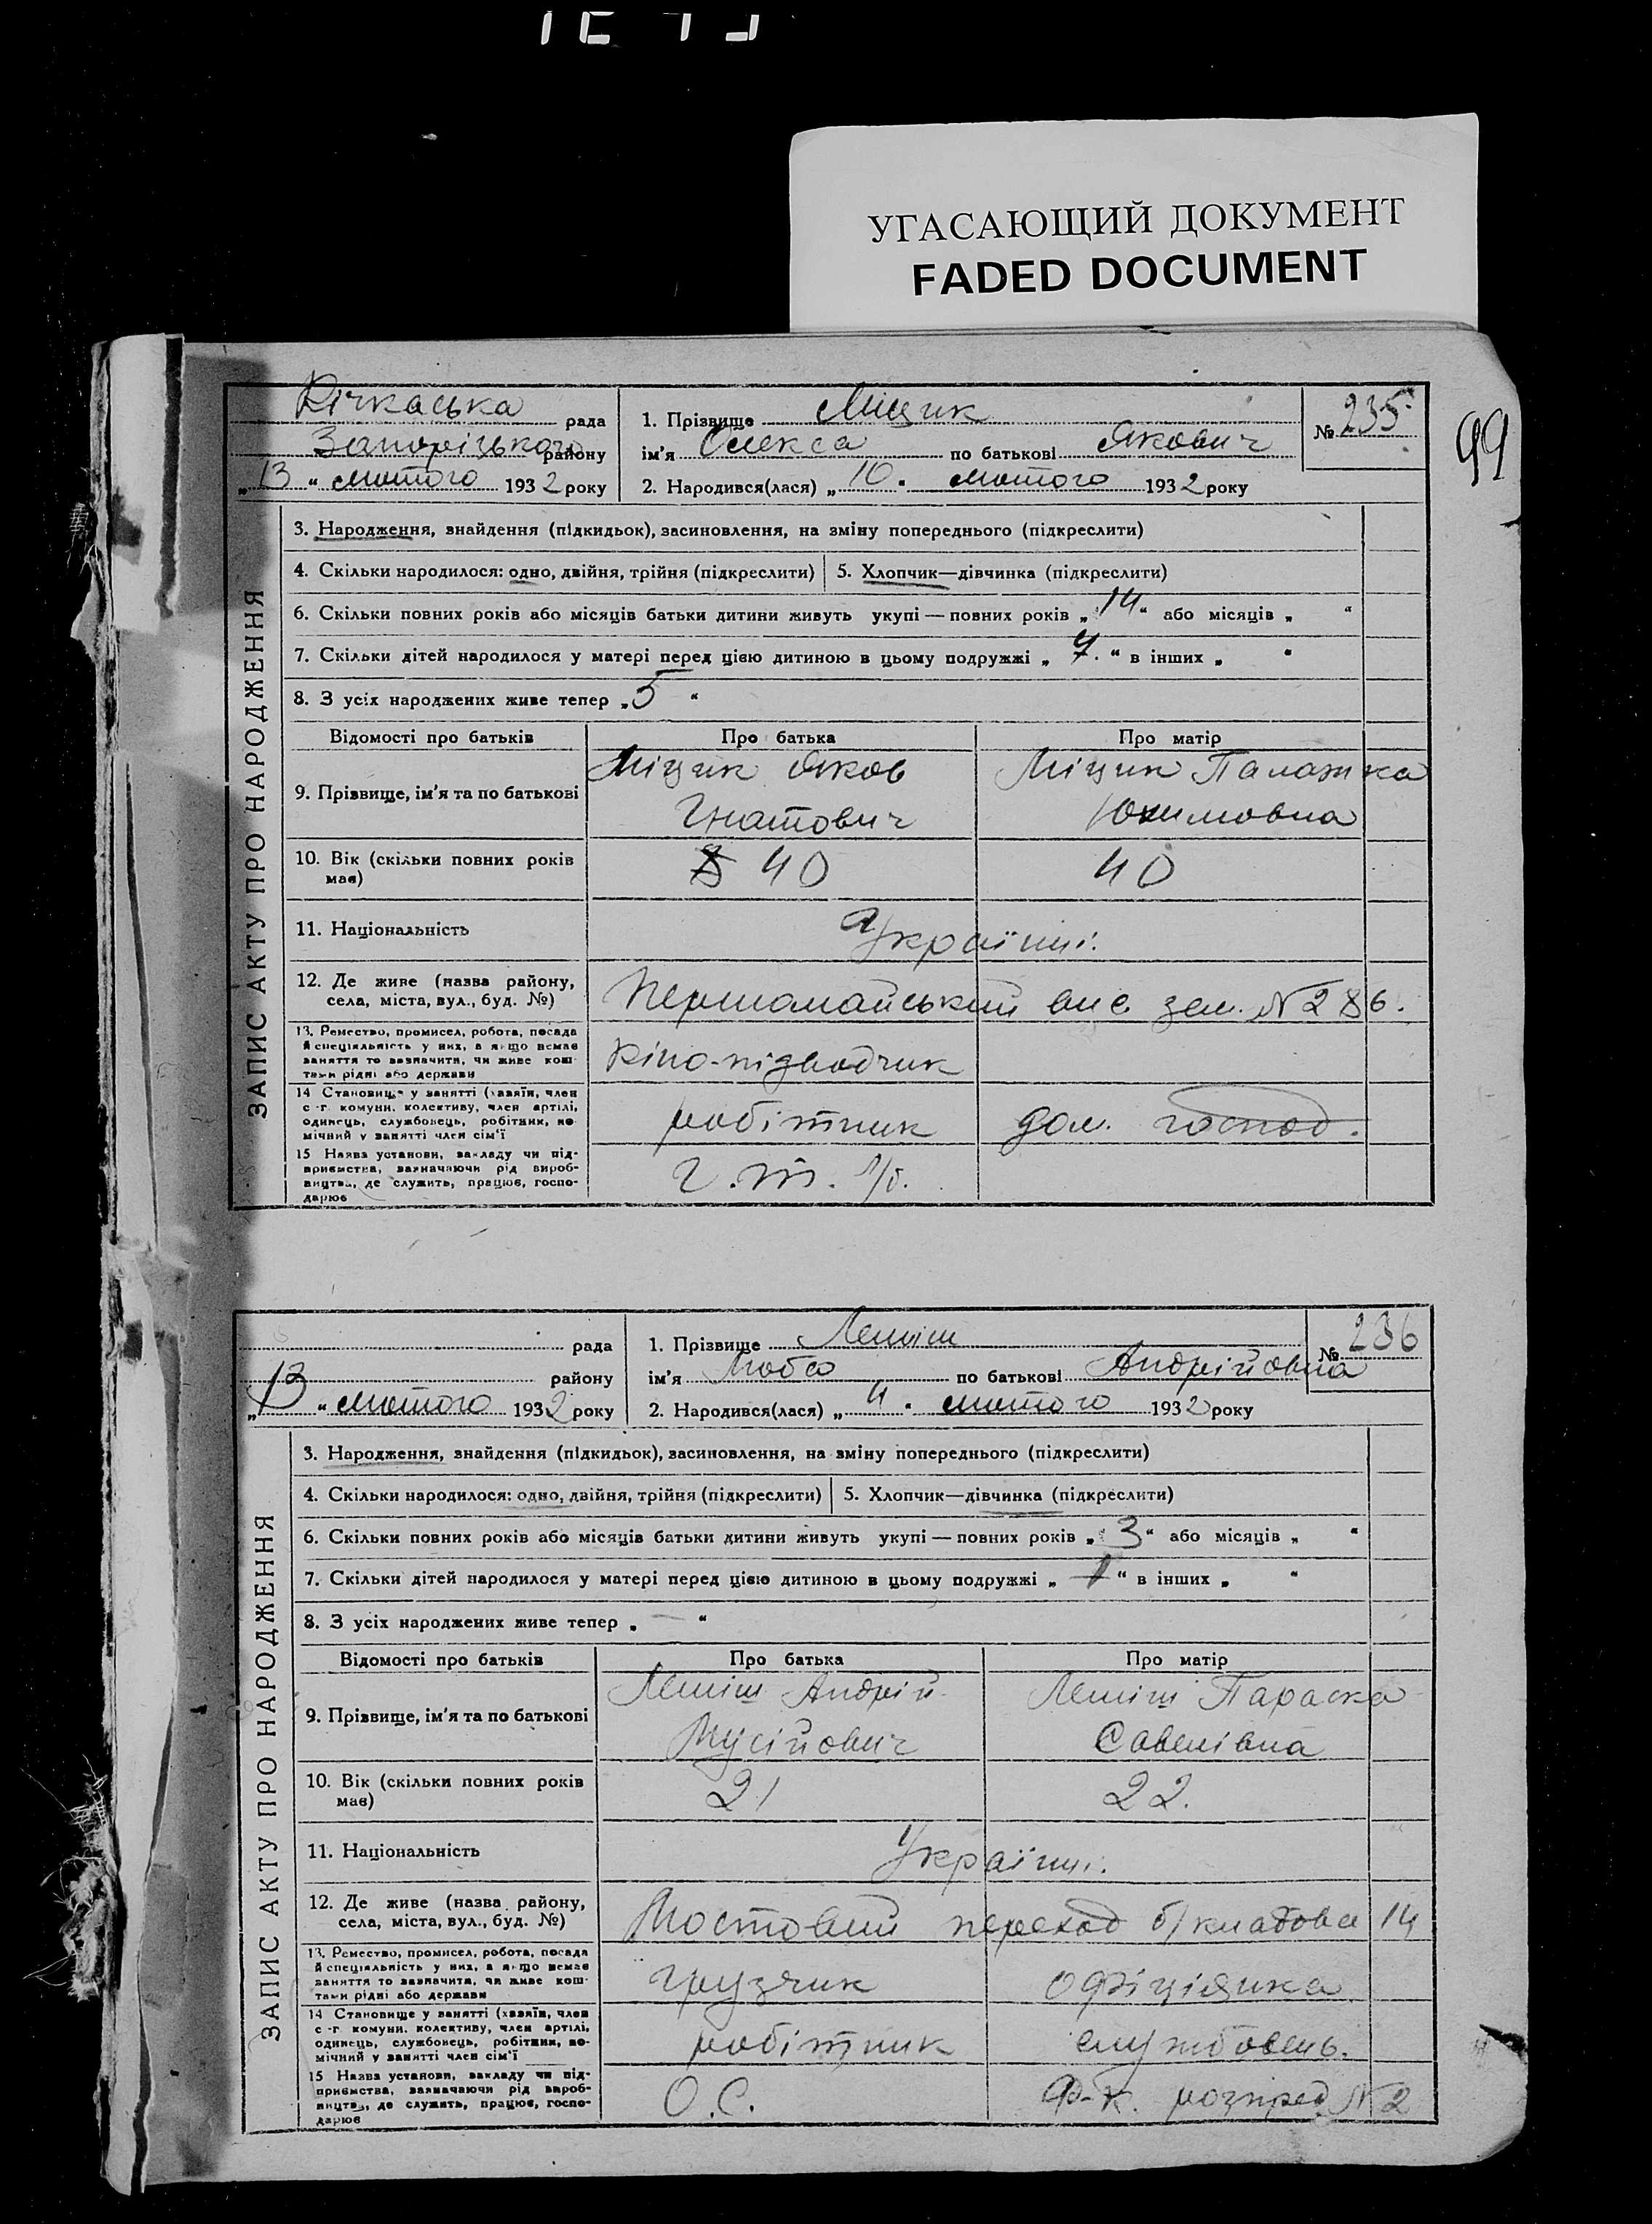 УГАСАЮЩИЙ ДОКУМЕНТ
FADED DOCUMENT
99
ЗАПИС АКТУ ПРО НАРОДЖЕННЯ
Кічкаська рада
Запоріцького району
„13“ лютого 1932 року
1. Прізвище Міщик
ім'я Олекса по батькові Якович
№ 235
2. Народився(лася) „10“ лютого 1932 року
3. Народження, знайдення (підкидьок), засиновлення, на зміну попереднього (підкреслити)
4. Скільки народилося: одно, двійня, трійня (підкреслити) 5. Хлопчик—дівчинка (підкреслити)
6. Скільки повних років або місяців батьки дитини живуть укупі — повних років „14“ або місяців „ “
7. Скільки дітей народилося у матері перед цією дитиною в цьому подружжі „7.“ в інших „ “
8. З усіх народжених живе тепер „5“
Відомості про батьків Про батька Про матір
9. Прізвище, ім'я та по батькові Міщик Яков Гнатович Міщик Палажка Юхимовна
10. Вік (скільки повних років має) 40 40
11. Національність Українці.
12. Де живе (назва району, села, міста, вул., буд. №) Першомайський вис зем. № 286.
13. Ремество, промисел, робота, посада й спеціяльність у них, а якщо немає заняття то зазначити, чи живе коштами рідні або держави
14 Становище у занятті (хазяїн, член с.-г. комуни, колективу, член артілі, одинець, службовець, робітник, помічний у занятті член сім'ї робітник дом. господ.
15 Назва установи, закладу чи підприємства, зазначаючи рід виробництва, де служить, працює, господарює
ЗАПИС АКТУ ПРО НАРОДЖЕННЯ
рада
району
„13“ лютого 1932 року
1. Прізвище Леміш
ім'я Люба по батькові Андрійовна
№ 236
2. Народився(лася) „4“ лютого 1932 року
3. Народження, знайдення (підкидьок), засиновлення, на зміну попереднього (підкреслити)
4. Скільки народилося: одно, двійня, трійня (підкреслити) 5. Хлопчик—дівчинка (підкреслити)
6. Скільки повних років або місяців батьки дитини живуть укупі — повних років „3“ або місяців „ “
7. Скільки дітей народилося у матері перед цією дитиною в цьому подружжі „1“ в інших „ “
8. З усіх народжених живе тепер „—“
Відомості про батьків Про батька Про матір
9. Прізвище, ім'я та по батькові Леміш Андрій Мусійович Леміш Параска Савелівна
10. Вік (скільки повних років має) 21 22.
11. Національність Українці.
12. Де живе (назва району, села, міста, вул., буд. №) Мостовий переход 14
13. Ремество, промисел, робота, посада й спеціяльність у них, а якщо немає заняття то зазначити, чи живе коштами рідні або держави грузчик офіціянка
14 Становище у занятті (хазяїн, член с.-г. комуни, колективу, член артілі, одинець, службовець, робітник, помічний у занятті член сім'ї робітник службовець.
15 Назва установи, закладу чи підприємства, зазначаючи рід виробництва, де служить, працює, господарює О.С. Ф-К. розпред. № 2